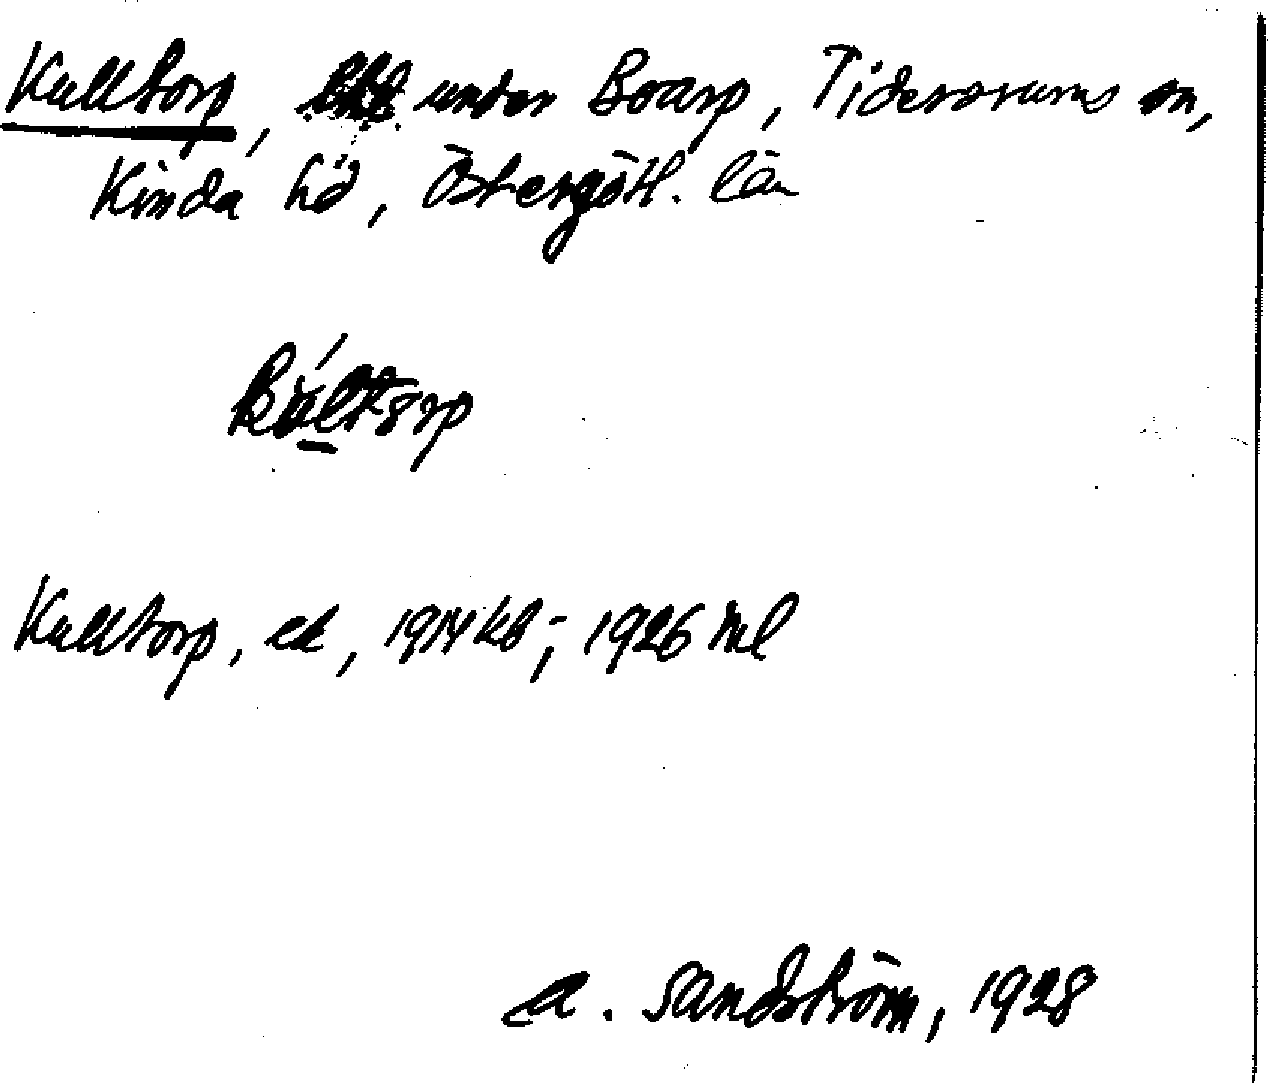 Kulltorp, under Boarp, Tidersrums sn,
Kinda hd, Östergötl. län
Kulltorp, 1914 kb; 1926 ml
A. Sandström, 1928